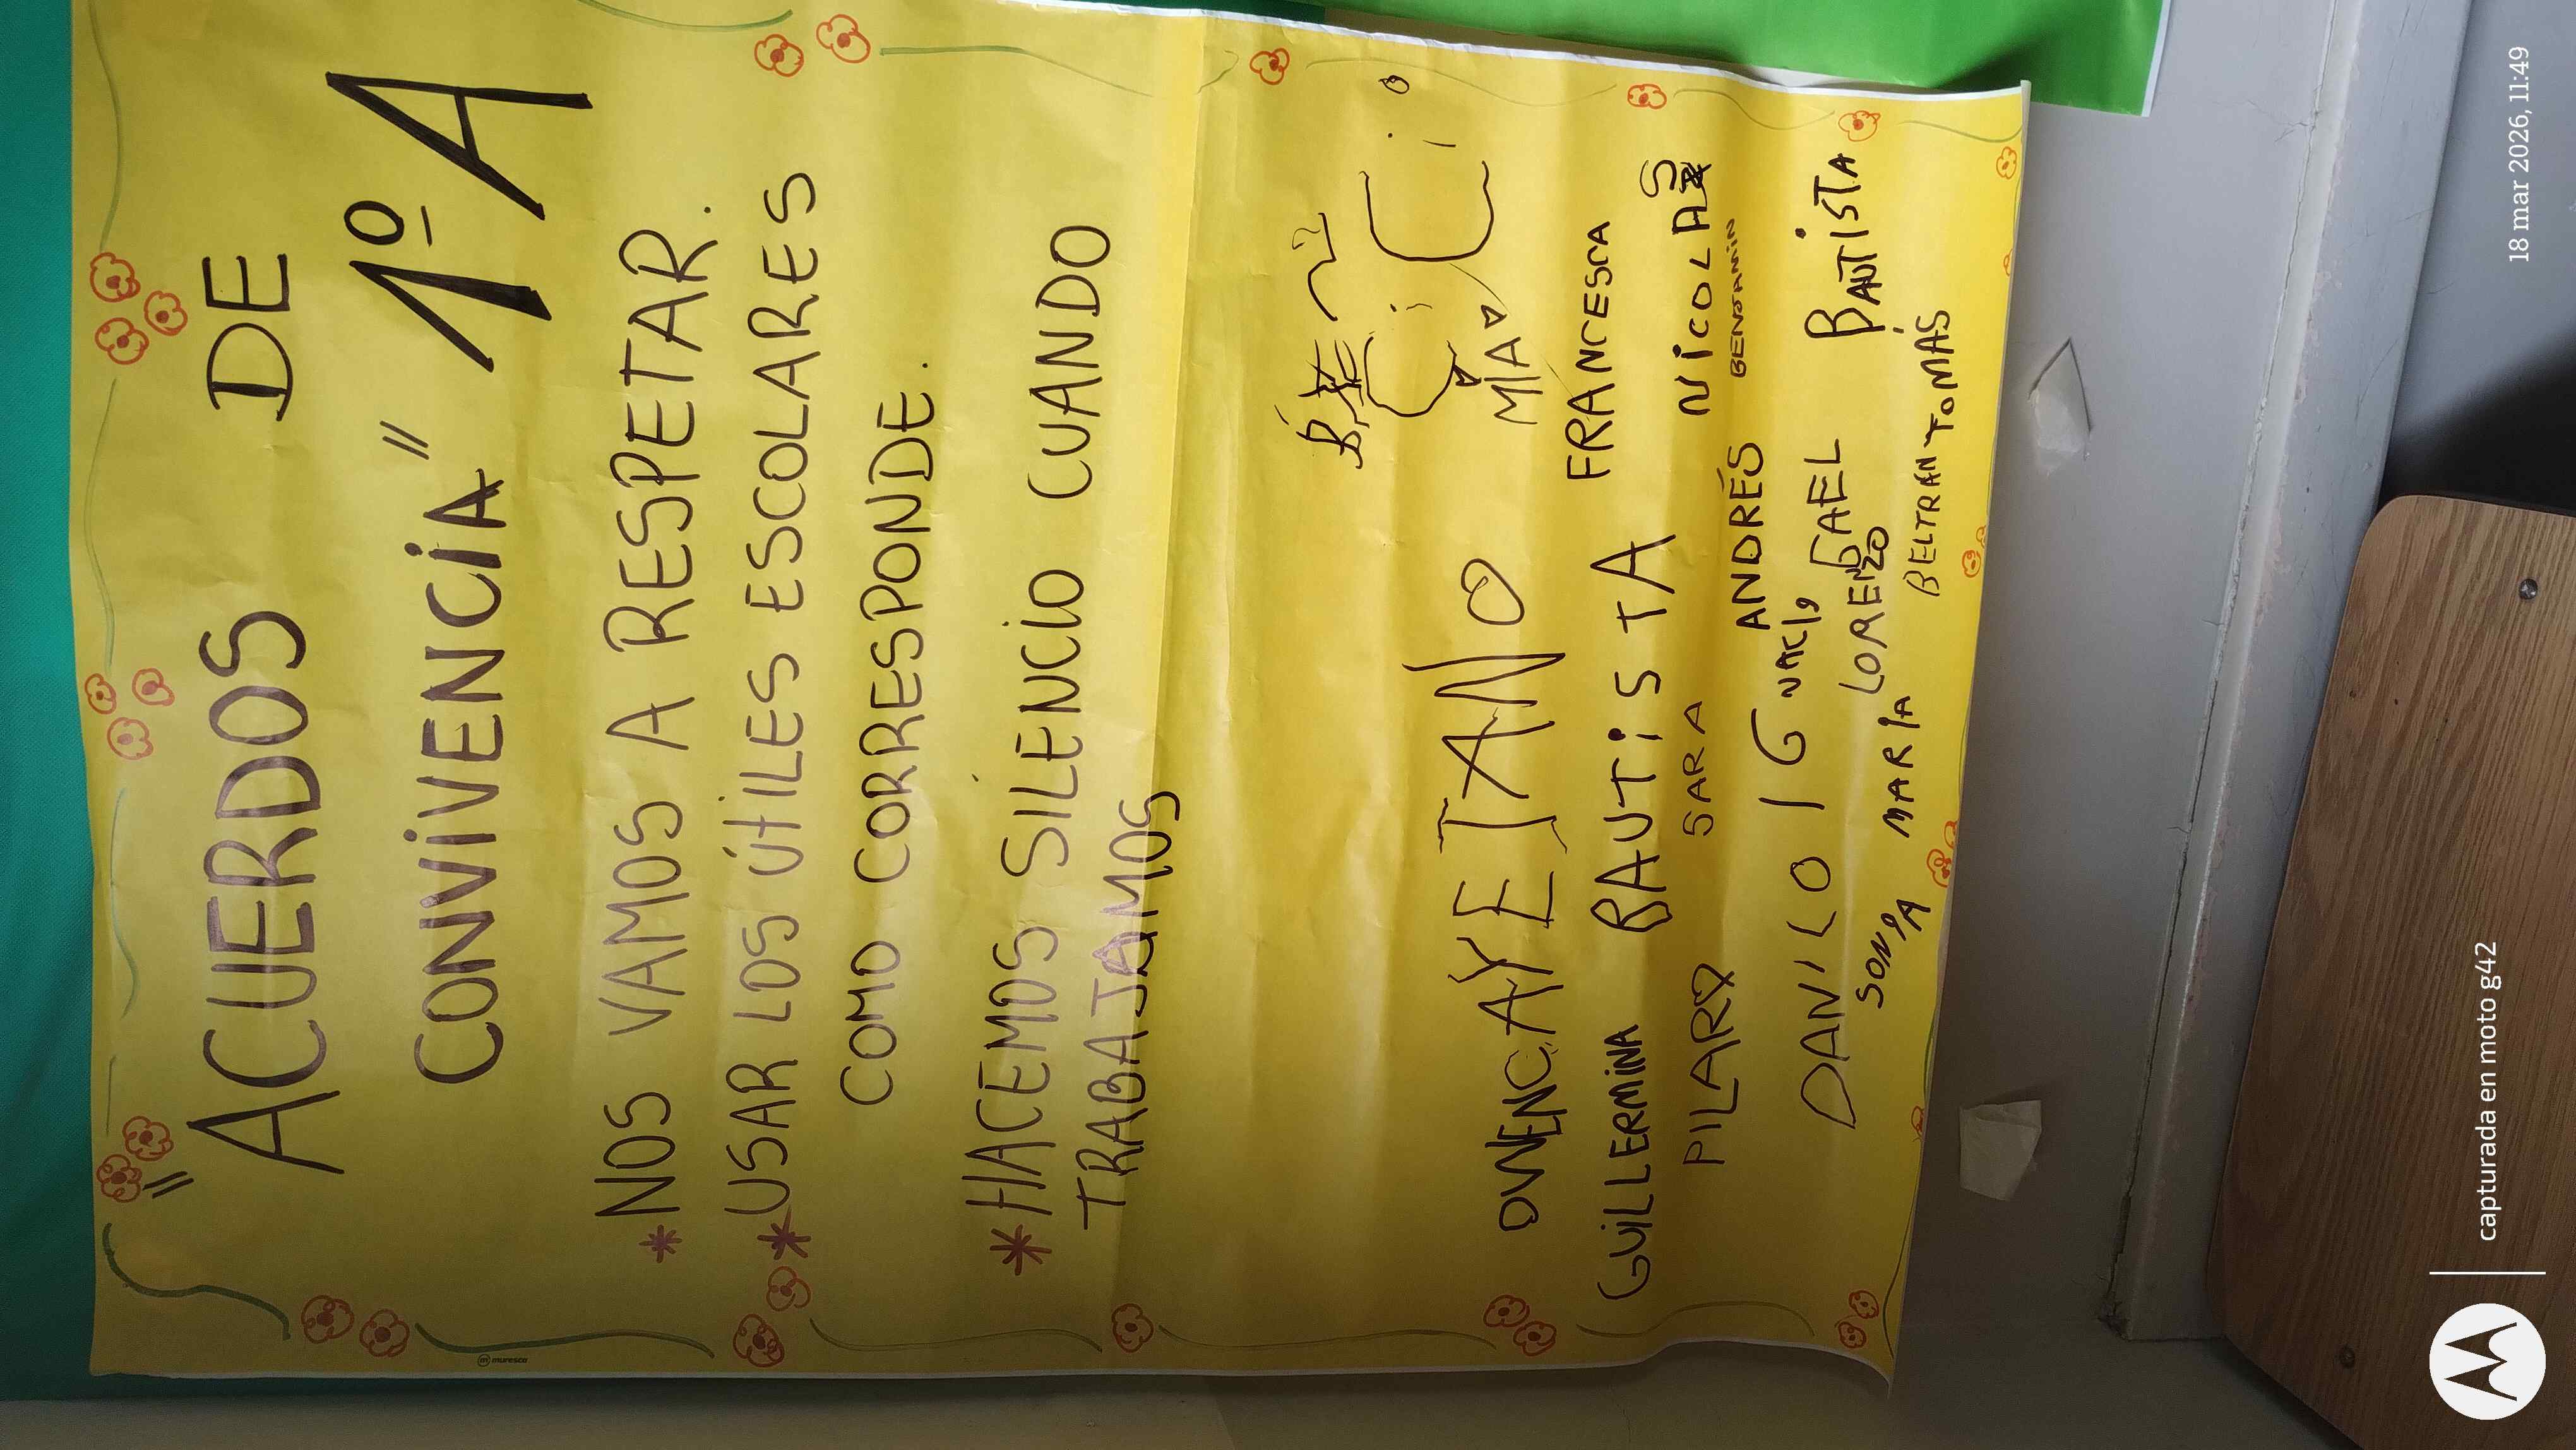 "ACUERDOS DE
CONVIVENCIA" 1º A
* NOS VAMOS A RESPETAR.
* USAR LOS ÚTILES ESCOLARES
COMO CORRESPONDE.
* HACEMOS SILENCIO CUANDO
TRABAJAMOS
CAYETANO MIA
GUILLERMINA BAUTISTA FRANCESCA
PILAR SARA NICOLAS
BENJAMIN
ANDRÉS
DANILO IGNACIO GAEL BAUTISTA
LORENZO
SONIA MARIA BELTRAN TOMÁS
muresco
capturada en moto g42
18 mar 2026, 11:49